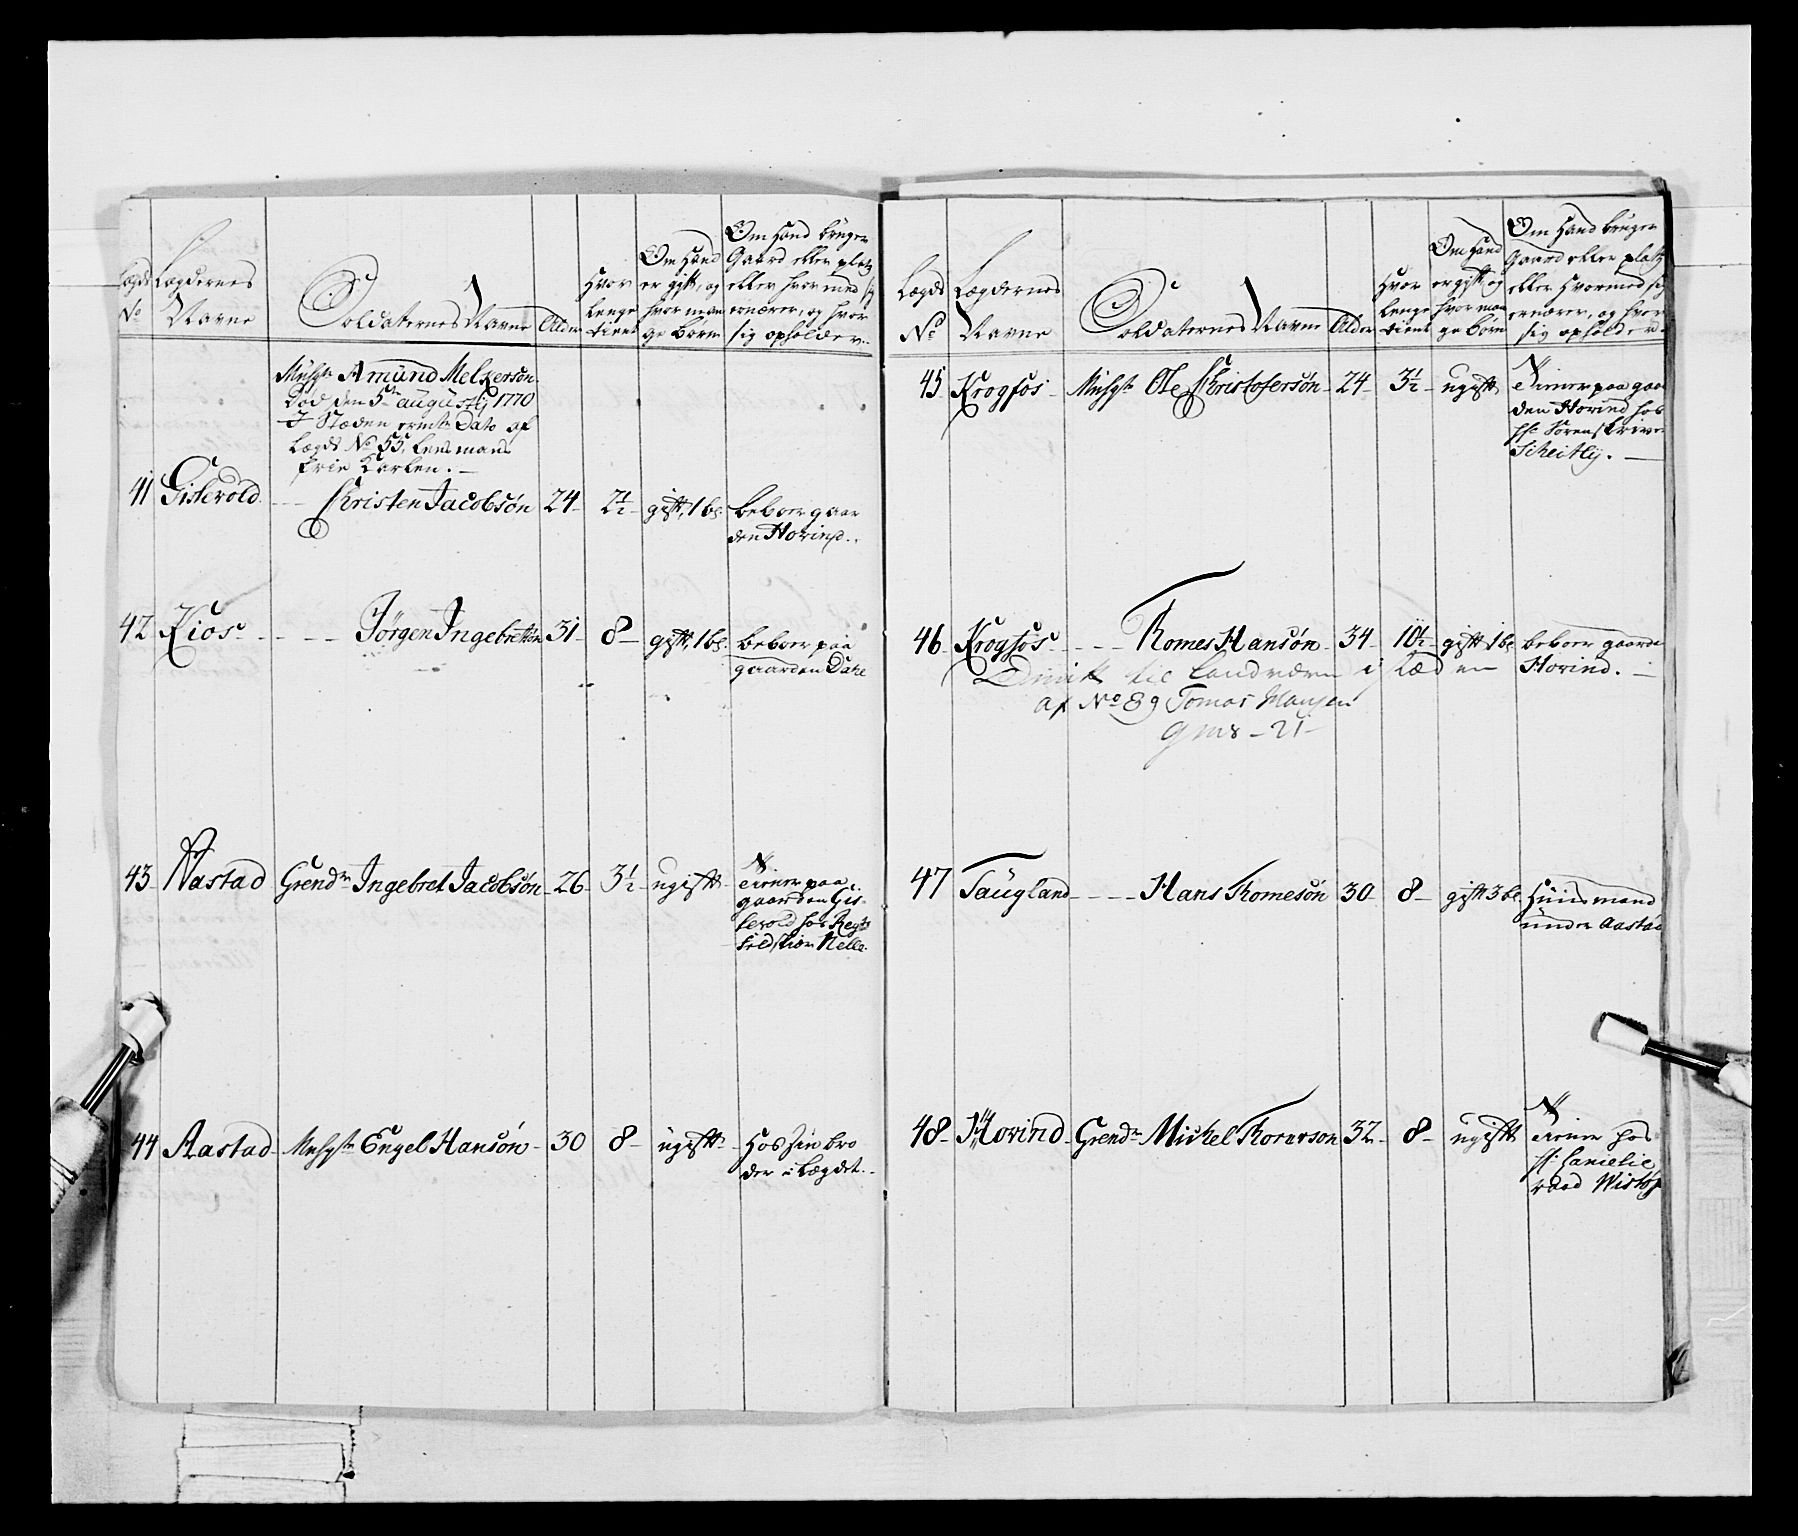 Lægds Lægdernes
No Navne
Soldaternes Navne
Alder
Hvor
lenge
tient
Om Hand
er gift, og
hvor man
ge børn
Om Hand bruger
Gaard eller platz
eller hvormed sig
ernærer, og hvor
sig opholder
Musqt: Amund Melkersøn
død den 5te augustij 1770
I Stæden ermte Dato af
Lægds No 55, Lensmans
Erie Karlen.
41 Gislevold - - - Christen Jacobsøn 24 - 2½ - gift, 1 b: beboer gaar
den Horind.
42 Kios - - - - Jørgen Ingebretsøn 31 - 8 - gift, 1 b: beboer paa
gaarden Dahe
43 - Aastad Grendr Ingebret Jacobsøn - 26 - 3½ - ugift Tiener paa
gaarden Gis-
levold hos Regts
feldskier Nelle.
44 Aastad - Musqt Engel Hansøn - 30 8 - ugift Hos sin bro
der i Lægdet.
Lægds Lægdernes
No Navne
Soldaternes Navne
Alder
Hvor
lenge
tient
Om Hand
er gift og
hvor man
ge børn
Om Hand bruger
Gaard eller platz
eller Hvormed sig
ernærer, og hvor
sig opholder
45 Krogfos - Musqt Ole Christofersøn - 24 - 3½ - ugift Tiener paa gaar
den Horind hos
Hr. Sorenskriver
Scheitly.
46 Krogfos - - - - Thomes Hansøn - 34 - 10½ - gift 1 b: beboer gaarde
Horind.
til Landværn i Stæden
af No 89 Tomas Hansen
9 ms - 21 -
47 Taugland - - - - Hans Thomesøn 30 - 8 - gift 3 b: Huusmand
under Aastad
48 - Horind Grendr Mickel Thorersøn 32 - 8 - ugift Tiener hos
Hr: Cancelie
raad Wistop